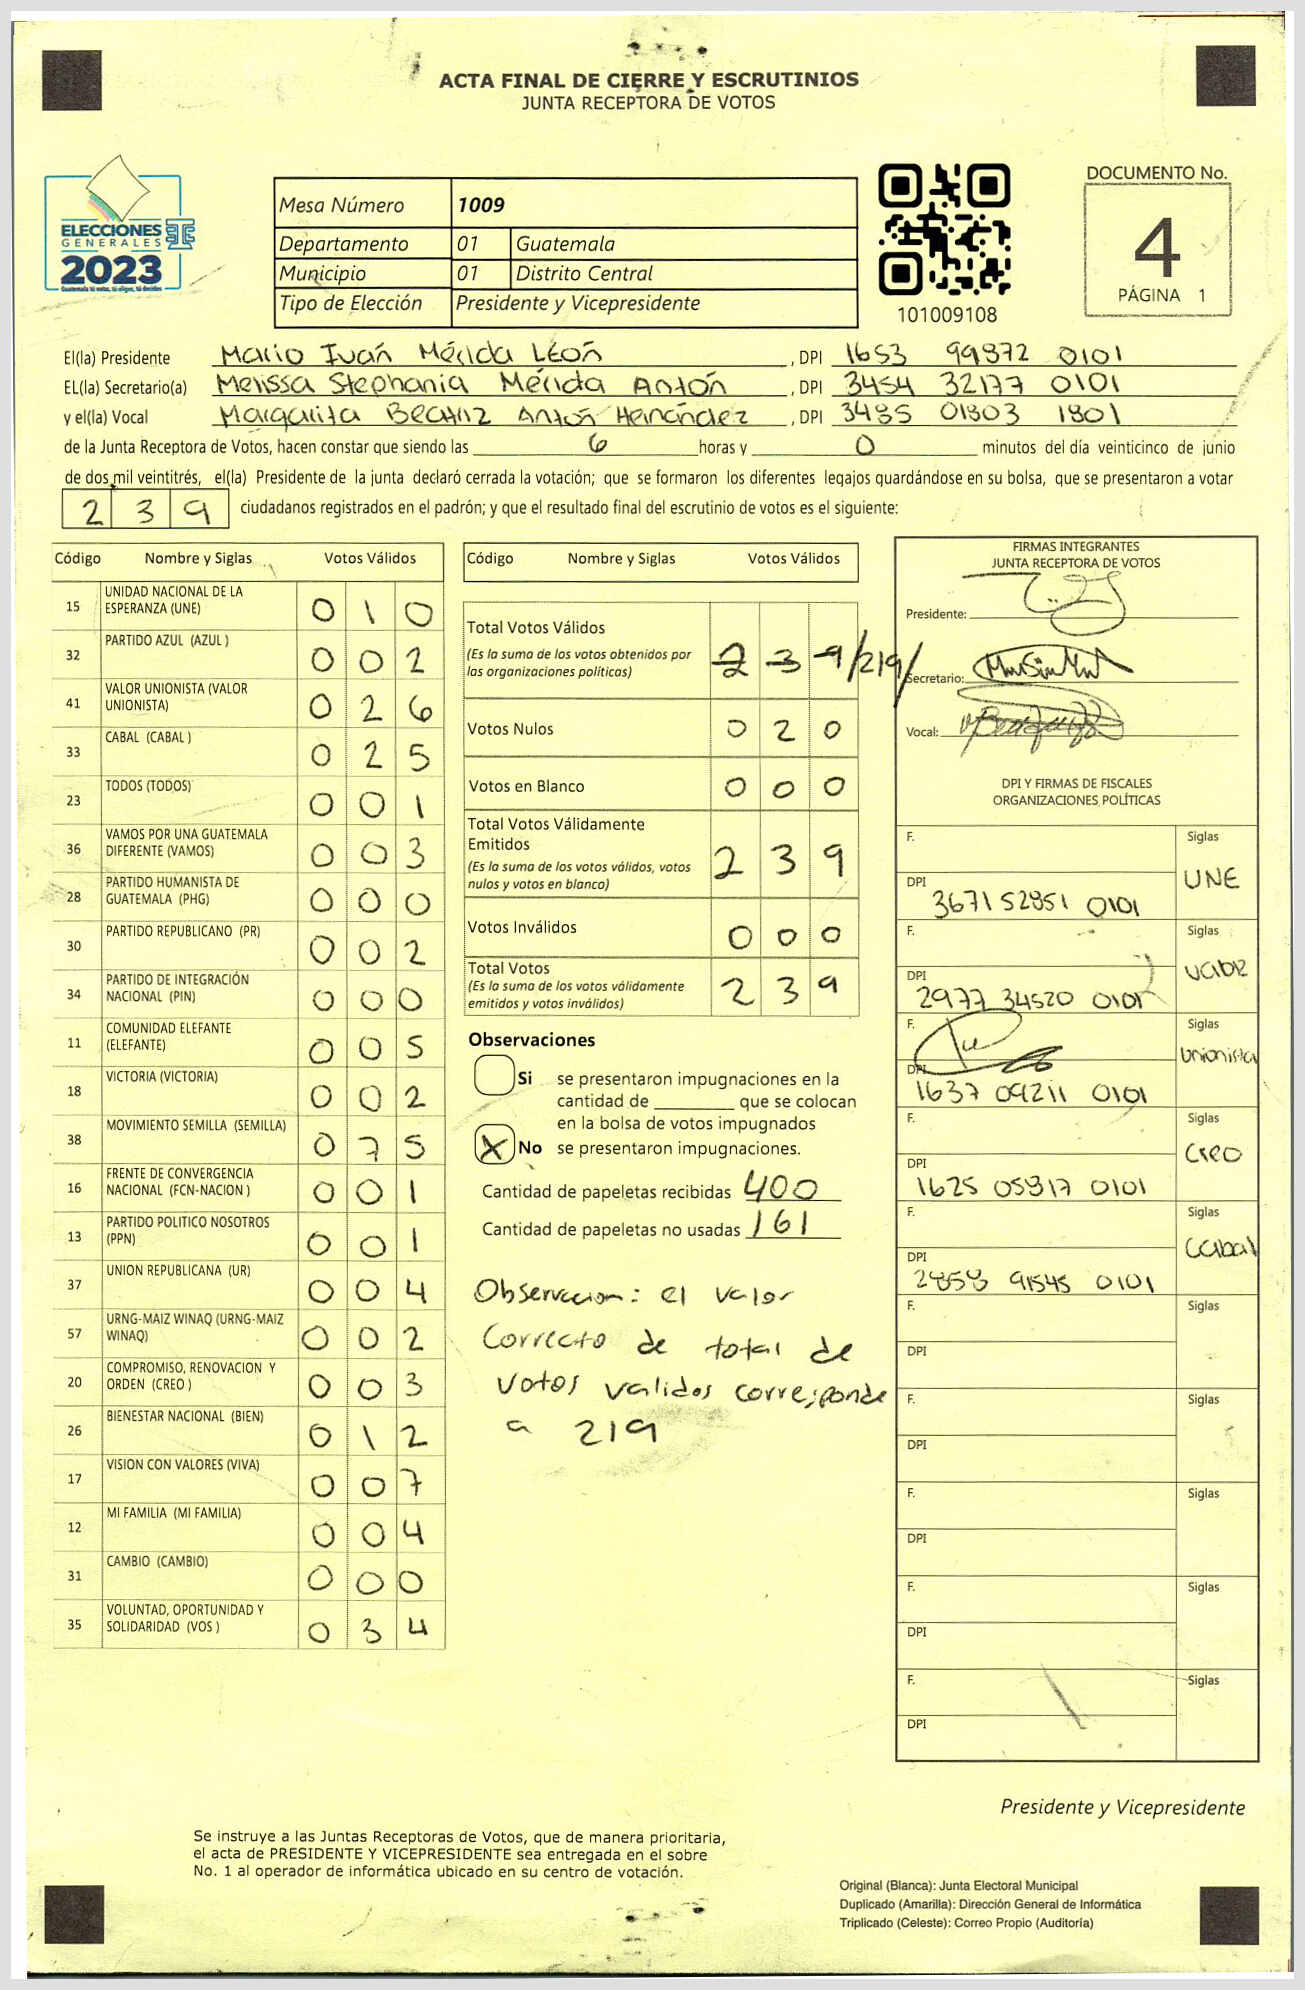 ACTA FINAL DE CIERRE Y ESCRUTINIOS
JUNTA RECEPTORA DE VOTOS
ELECCIONES
GENERALES
2023
Guatemala tú votas, tú eliges, tú decides
Mesa Número 1009
Departamento 01 Guatemala
Municipio 01 Distrito Central
Tipo de Elección Presidente y Vicepresidente
101009108
DOCUMENTO No.
4
PÁGINA 1
El(la) Presidente Mario Iván Mérida León, DPI 1653 99872 0101
EL(la) Secretario(a) Melissa Stephania Mérida Antón, DPI 3454 32177 0101
y el(la) Vocal Margarita Beatriz Antón Hernández, DPI 3485 01803 1801
de la Junta Receptora de Votos, hacen constar que siendo las 6 horas y 0 minutos del día veinticinco de junio
de dos mil veintitrés, el(la) Presidente de la junta declaró cerrada la votación; que se formaron los diferentes legajos guardándose en su bolsa, que se presentaron a votar
239 ciudadanos registrados en el padrón; y que el resultado final del escrutinio de votos es el siguiente:
Código Nombre y Siglas Votos Válidos
15 UNIDAD NACIONAL DE LA ESPERANZA (UNE) 0 1 0
32 PARTIDO AZUL (AZUL ) 0 0 2
41 VALOR UNIONISTA (VALOR UNIONISTA) 0 2 6
33 CABAL (CABAL ) 0 2 5
23 TODOS (TODOS) 0 0 1
36 VAMOS POR UNA GUATEMALA DIFERENTE (VAMOS) 0 0 3
28 PARTIDO HUMANISTA DE GUATEMALA (PHG) 0 0 0
30 PARTIDO REPUBLICANO (PR) 0 0 2
34 PARTIDO DE INTEGRACIÓN NACIONAL (PIN) 0 0 0
11 COMUNIDAD ELEFANTE (ELEFANTE) 0 0 5
18 VICTORIA (VICTORIA) 0 0 2
38 MOVIMIENTO SEMILLA (SEMILLA) 0 7 5
16 FRENTE DE CONVERGENCIA NACIONAL (FCN-NACION ) 0 0 1
13 PARTIDO POLITICO NOSOTROS (PPN) 0 0 1
37 UNION REPUBLICANA (UR) 0 0 4
57 URNG-MAIZ WINAQ (URNG-MAIZ WINAQ) 0 0 2
20 COMPROMISO, RENOVACION Y ORDEN (CREO ) 0 0 3
26 BIENESTAR NACIONAL (BIEN) 0 1 2
17 VISION CON VALORES (VIVA) 0 0 7
12 MI FAMILIA (MI FAMILIA) 0 0 4
31 CAMBIO (CAMBIO) 0 0 0
35 VOLUNTAD, OPORTUNIDAD Y SOLIDARIDAD (VOS ) 0 3 4
Código Nombre y Siglas Votos Válidos
Total Votos Válidos
(Es la suma de los votos obtenidos por
las organizaciones políticas) 2 3 9 /219/
Votos Nulos 0 2 0
Votos en Blanco 0 0 0
Total Votos Válidamente
Emitidos
(Es la suma de los votos válidos, votos
nulos y votos en blanco) 2 3 9
Votos Inválidos 0 0 0
Total Votos
(Es la suma de los votos válidamente
emitidos y votos inválidos) 2 3 9
Observaciones
Si se presentaron impugnaciones en la
cantidad de ________ que se colocan
en la bolsa de votos impugnados
X No se presentaron impugnaciones.
Cantidad de papeletas recibidas 400
Cantidad de papeletas no usadas 161
Observacion: el valor
Correcto de total de
votos validos corresponde
a 219
FIRMAS INTEGRANTES
JUNTA RECEPTORA DE VOTOS
Presidente:
Secretario:
Vocal:
DPI Y FIRMAS DE FISCALES
ORGANIZACIONES POLÍTICAS
F. Siglas
UNE
DPI 3671 52851 0101
F. Siglas
DPI 2977 34520 0101
F. Siglas
Unionista
DPI 1637 09211 0101
F. Siglas
Creo
DPI 1625 05317 0101
F. Siglas
Cabal
DPI 2858 91545 0101
F. Siglas
DPI
F. Siglas
DPI
F. Siglas
DPI
F. Siglas
DPI
F. Siglas
DPI
Presidente y Vicepresidente
Se instruye a las Juntas Receptoras de Votos, que de manera prioritaria,
el acta de PRESIDENTE Y VICEPRESIDENTE sea entregada en el sobre
No. 1 al operador de informática ubicado en su centro de votación.
Original (Blanca): Junta Electoral Municipal
Duplicado (Amarilla): Dirección General de Informática
Triplicado (Celeste): Correo Propio (Auditoría)